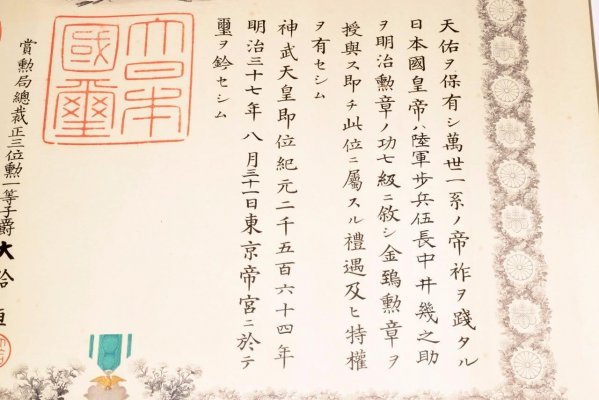 天佑ヲ保有シ萬世一系ノ帝祚ヲ踐タル
日本國皇帝ハ陸軍步兵伍長中井幾之助
ヲ明治勲章ノ功七級ニ敘シ金鵄勲章ヲ
授與ス即チ此位ニ屬スル禮遇及ヒ特權
ヲ有セシム
神武天皇即位紀元二千五百六十四年
明治三十七年八月三十一日東京帝宮ニ於テ
璽ヲ鈐セシム
大日本
國璽
賞勲局總裁正三位勲一等子爵大給恒